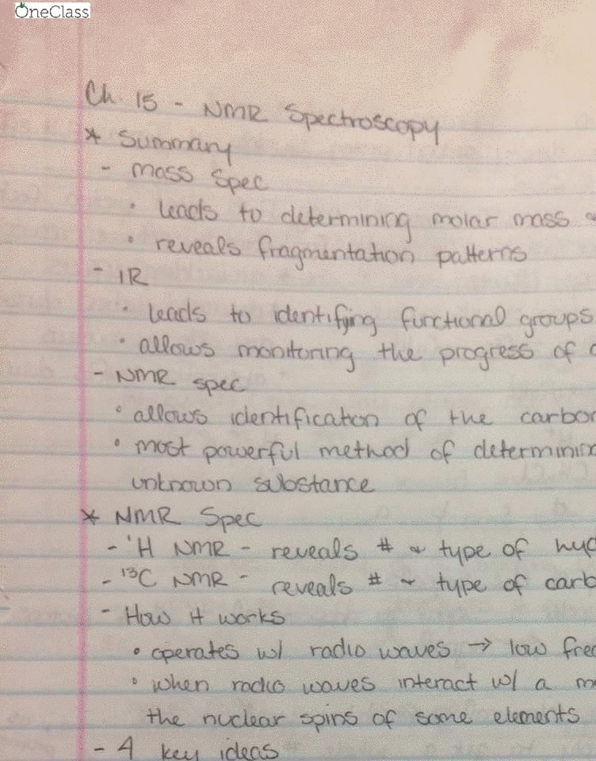 OneClass
Ch. 15 - NMR Spectroscopy
* Summary
- Mass Spec
• leads to determining molar mass
• reveals fragmentation patterns
- IR
• leads to identifying functional groups
• allows monitoring the progress of
- NMR spec
• allows identification of the carbo
• most powerful method of determinin
unknown substance
* NMR Spec
- ¹H NMR - reveals # & type of hyd
- ¹³C NMR - reveals # & type of carb
- How it works
• operates w/ radio waves → low fre
• when radio waves interact w/ a m
the nuclear spins of some elements
- 4 key ideas